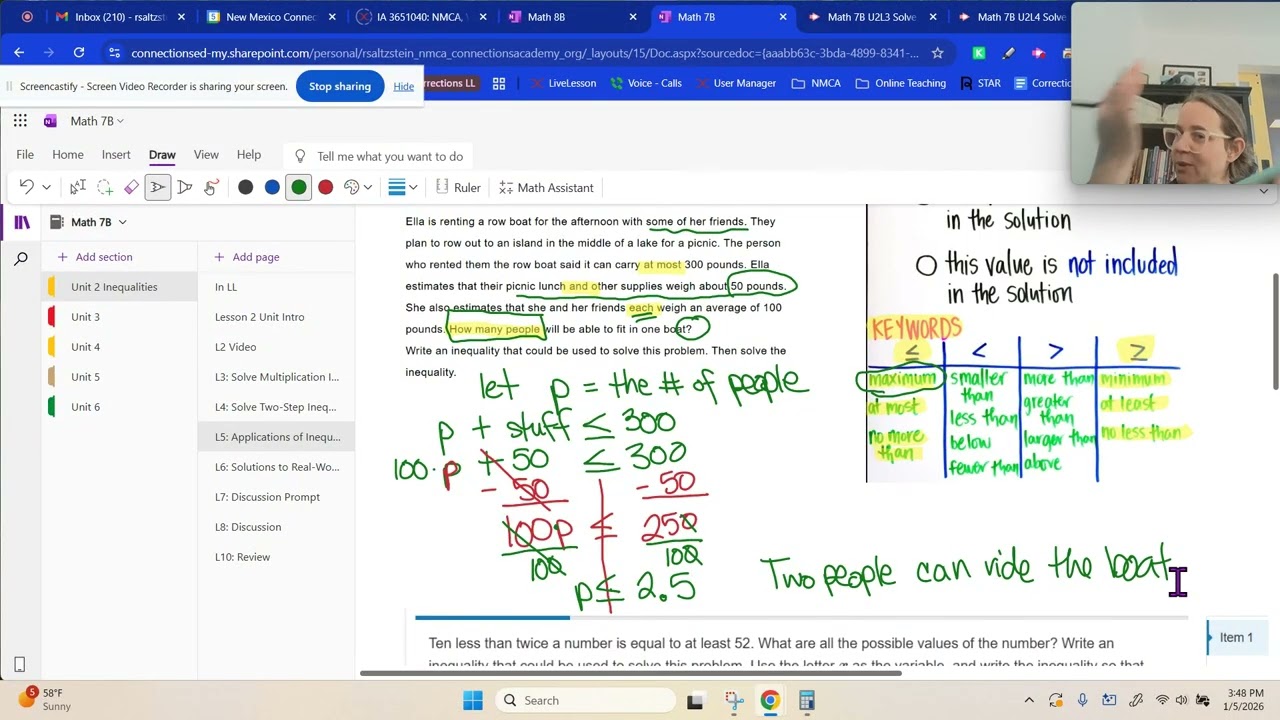 Inbox (210) - rsaltzst
New Mexico Connec
IA 3651040: NMCA,
Math 8B
Math 7B
Math 7B U2L3 Solve
Math 7B U2L4 Solve
connectionsed-my.sharepoint.com/personal/rsaltzstein_nmca_connectionsacademy_org/_layouts/15/Doc.aspx?sourcedoc={aaabb63c-3bda-4899-8341-...
Screencastify - Screen Video Recorder is sharing your screen.
Stop sharing
Hide
rrections LL
LiveLesson
Voice - Calls
User Manager
NMCA
Online Teaching
STAR
Correctio
Math 7B
File
Home
Insert
Draw
View
Help
Tell me what you want to do
Ruler
Math Assistant
Math 7B
Add section
Add page
Unit 2 Inequalities
Unit 3
Unit 4
Unit 5
Unit 6
In LL
Lesson 2 Unit Intro
L2 Video
L3: Solve Multiplication I...
L4: Solve Two-Step Ineq...
L5: Applications of Inequ...
L6: Solutions to Real-Wo...
L7: Discussion Prompt
L8: Discussion
L10: Review
Ella is renting a row boat for the afternoon with some of her friends. They
plan to row out to an island in the middle of a lake for a picnic. The person
who rented them the row boat said it can carry at most 300 pounds. Ella
estimates that their picnic lunch and other supplies weigh about 50 pounds.
She also estimates that she and her friends each weigh an average of 100
pounds. How many people will be able to fit in one boat?
Write an inequality that could be used to solve this problem. Then solve the
inequality.
let p = the # of people
p + stuff ≤ 300
100·p + 50 ≤ 300
- 50 - 50
100p ≤ 250
100 100
p ≤ 2.5
Two people can ride the boat.
in the solution
this value is not included
in the solution
KEYWORDS
≤ < > ≥
maximum
at most
no more
than
smaller
than
less than
below
fewer than
more than
greater
than
larger than
above
minimum
at least
no less than
Ten less than twice a number is equal to at least 52. What are all the possible values of the number? Write an
inequality that could be used to solve this problem. Use the letter x as the variable, and write the inequality so that
Item 1
5
58°F
Sunny
Search
3:48 PM
1/5/2026